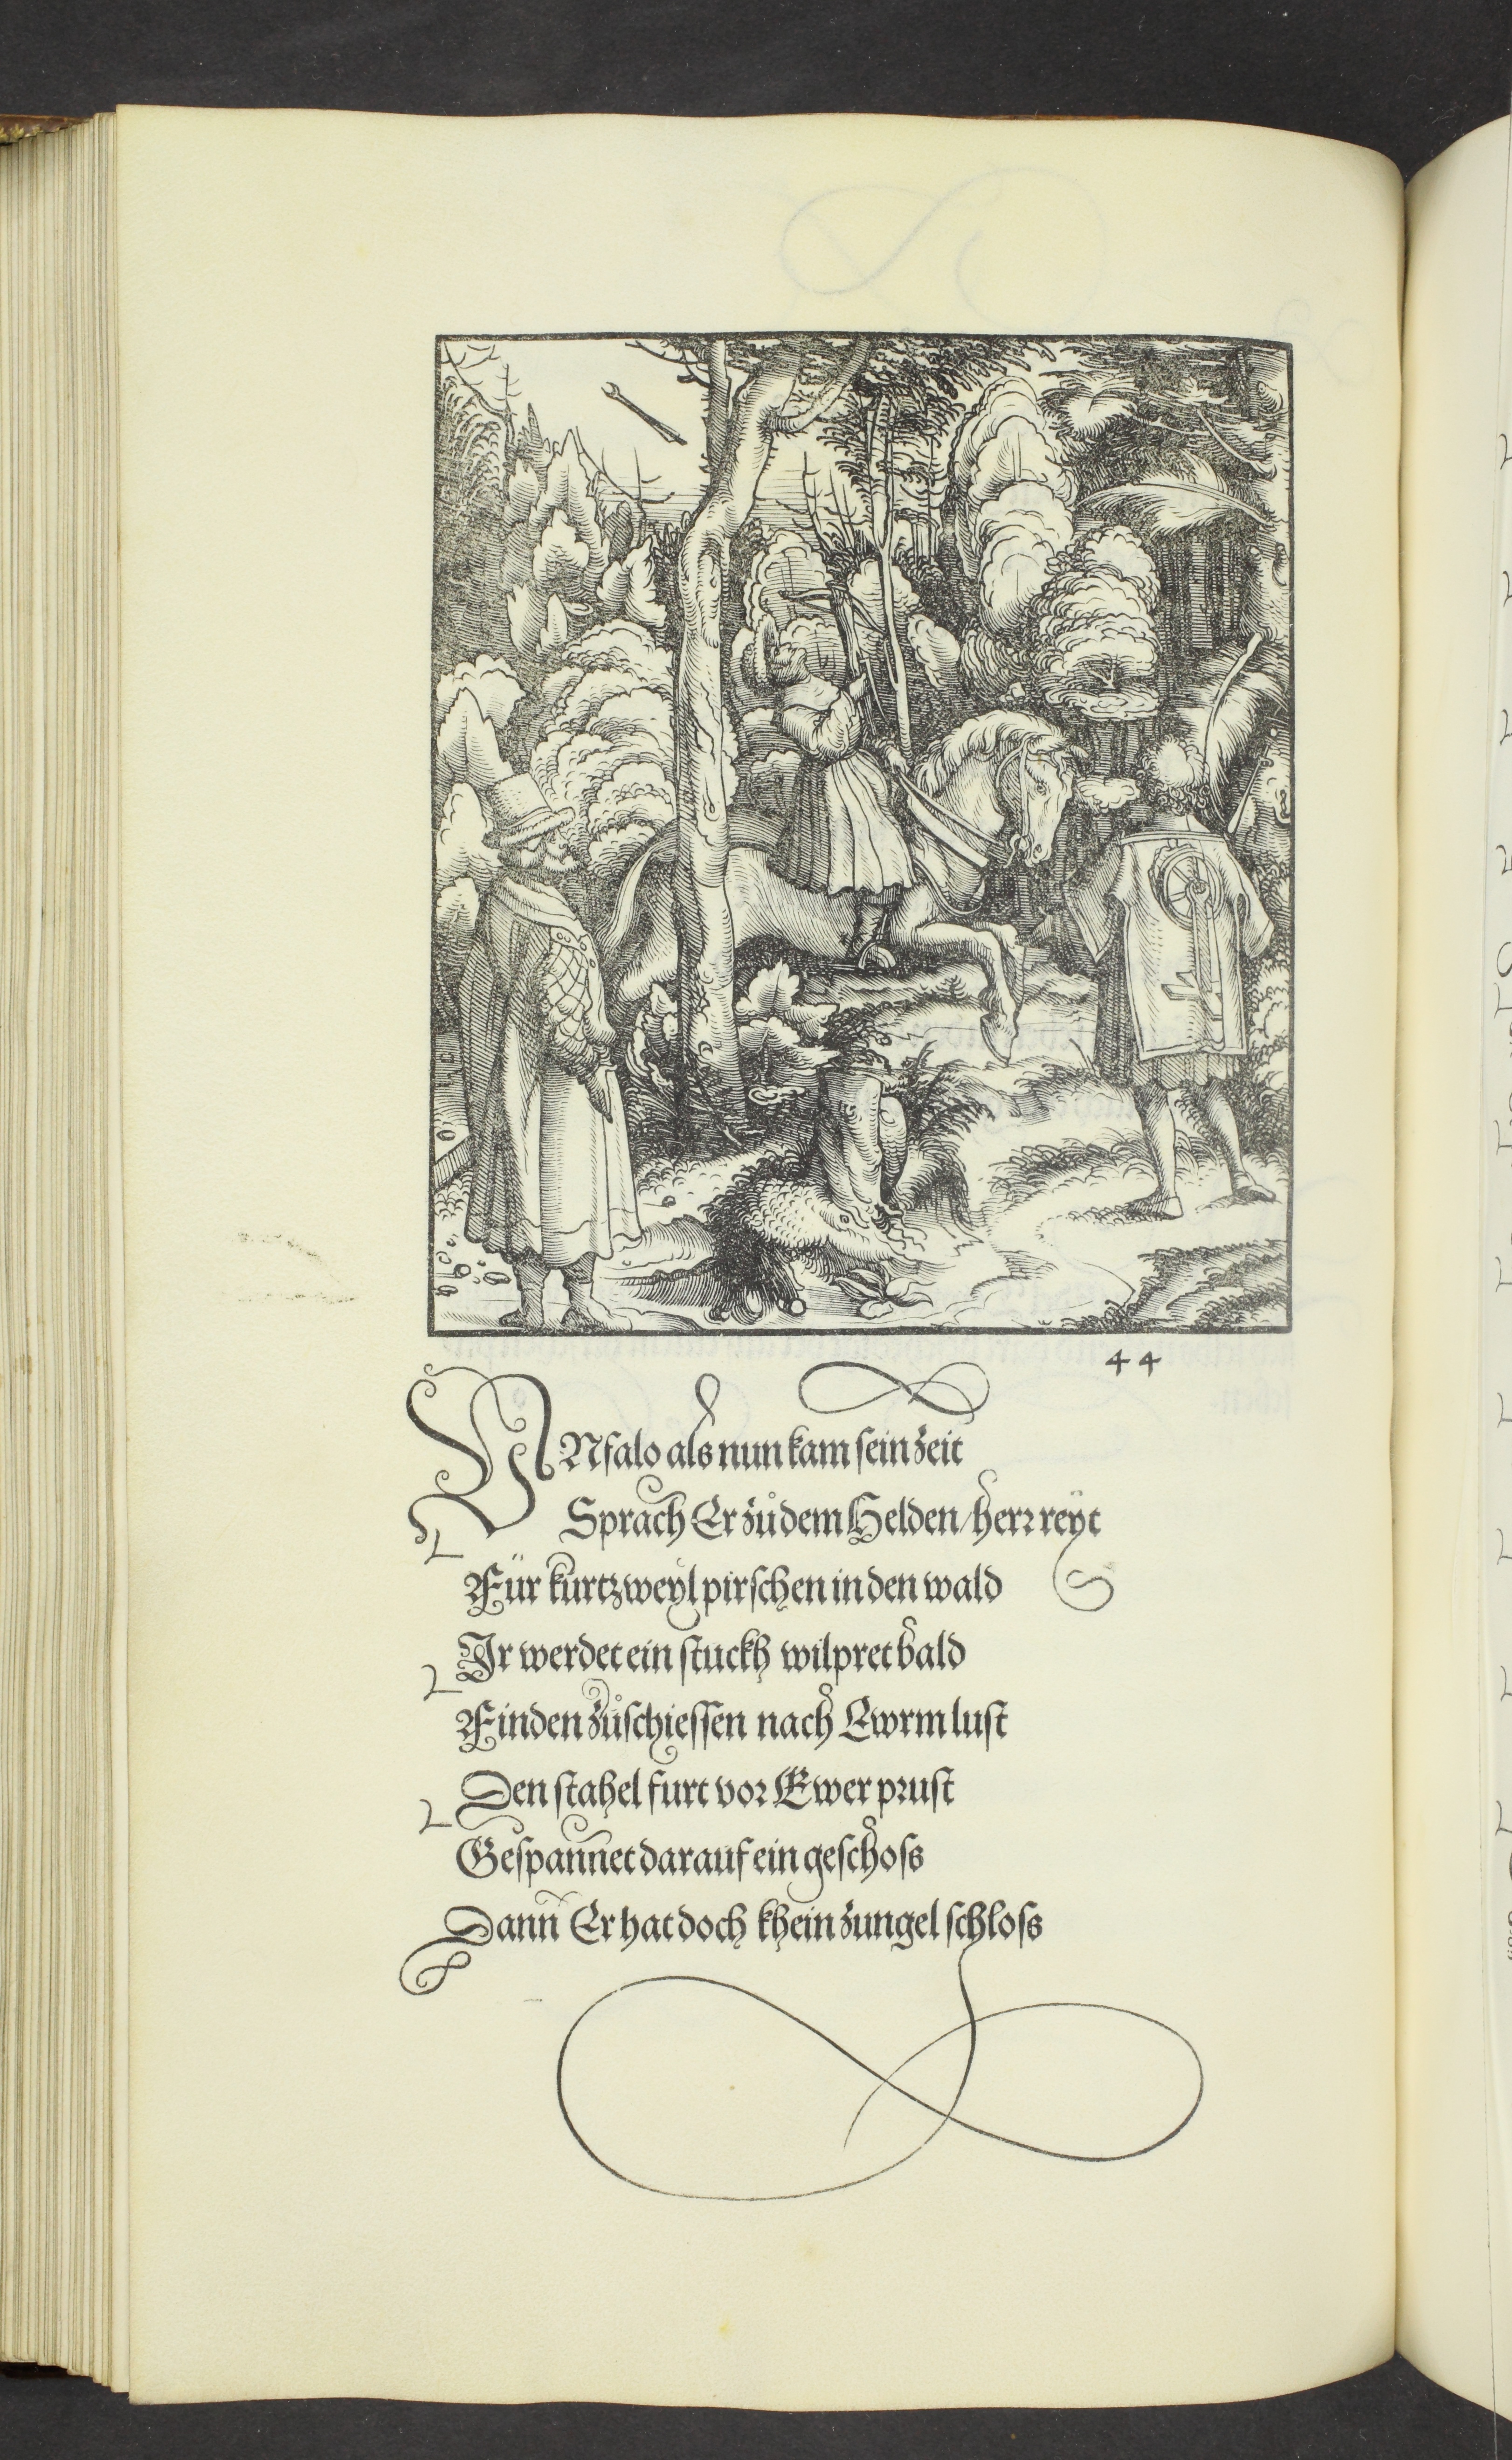 44
VNfalo als nun kam sein zeit
Sprach Er zů dem Helden/herr reyt
Für kurtzweyl pirschen in den wald
Ir werdet ein stuckh wilpret bald
Finden zůschiessen nach Ewrm lust
Den stahel furt vor Ewer prust
Gespannet darauf ein geschoss
Dann Er hat doch khein zungel schloss